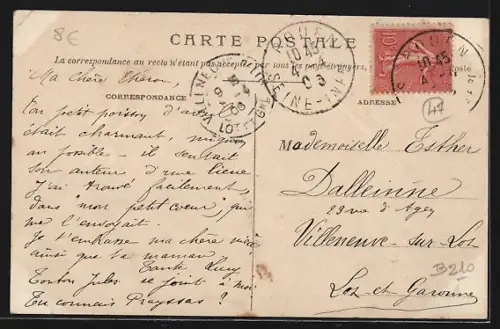 8€
CARTE POSTALE
La correspondance au recto n'étant pas acceptée par tous les pays étrangers
poste
CORRESPONDANCE
ADRESSE
ROUEN
10 45
4
03
SEINE-INF
VILLENEUVE
LOT
ROUEN
10 45
4
10
47
Ma Chère
Ton petit poisson d'avril
était charmant, mignon
au possible — il sentait
son auteur d'une lieue
J'ai trouvé facilement,
dans mon petit cœur, qui
me l'envoyait.
Je t'embrasse ma chère nièce
ainsi que ta maman
Tante Lucy
Tonton Jules se joint à moi
Tu connais Prayssas ?
Mademoiselle Esther
Dalleinne
23 rue d'Agen
Villeneuve-sur-Lot
Lot et Garonne
B210